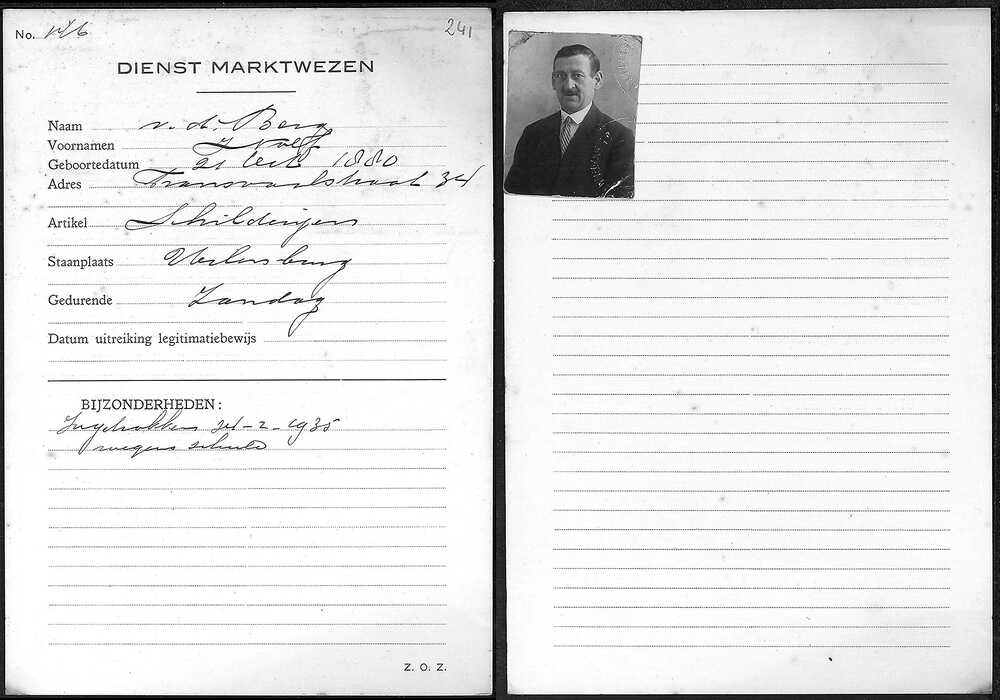 No. 146
241
DIENST MARKTWEZEN
Naam v. d. Berg
Voornamen Wolf
Geboortedatum 21 Oct 1880
Adres Transvaalstraat
Artikel Schilderijen
Staanplaats Uilenburg
Gedurende Zondag
Datum uitreiking legitimatiebewijs
BIJZONDERHEDEN:
Ingetrokken -2-1935
wegens schuld
Z. O. Z.